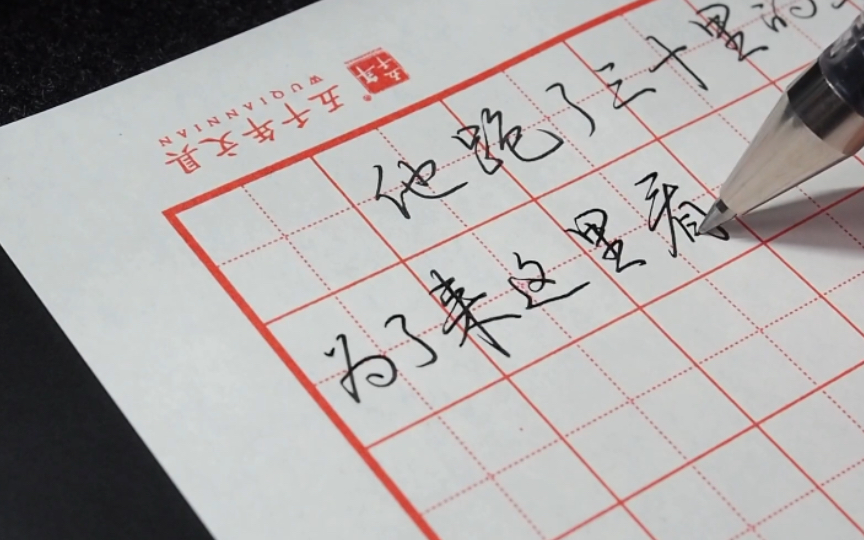 五千年文具
WUQIANNIAN
他跑了三十里的
为了来这里看